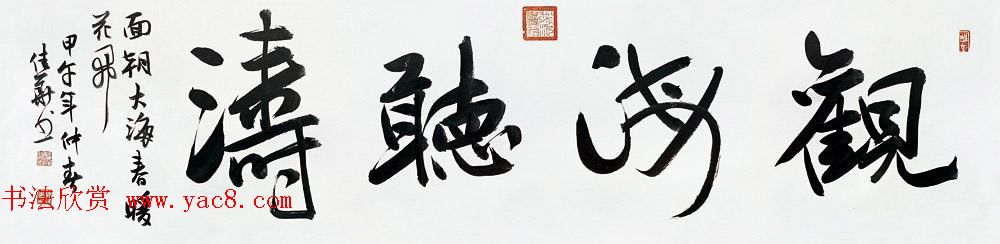 觀海聽濤
面朝大海春暖
花開
甲午年仲春
佳華書
书法欣赏
www.yac8.com